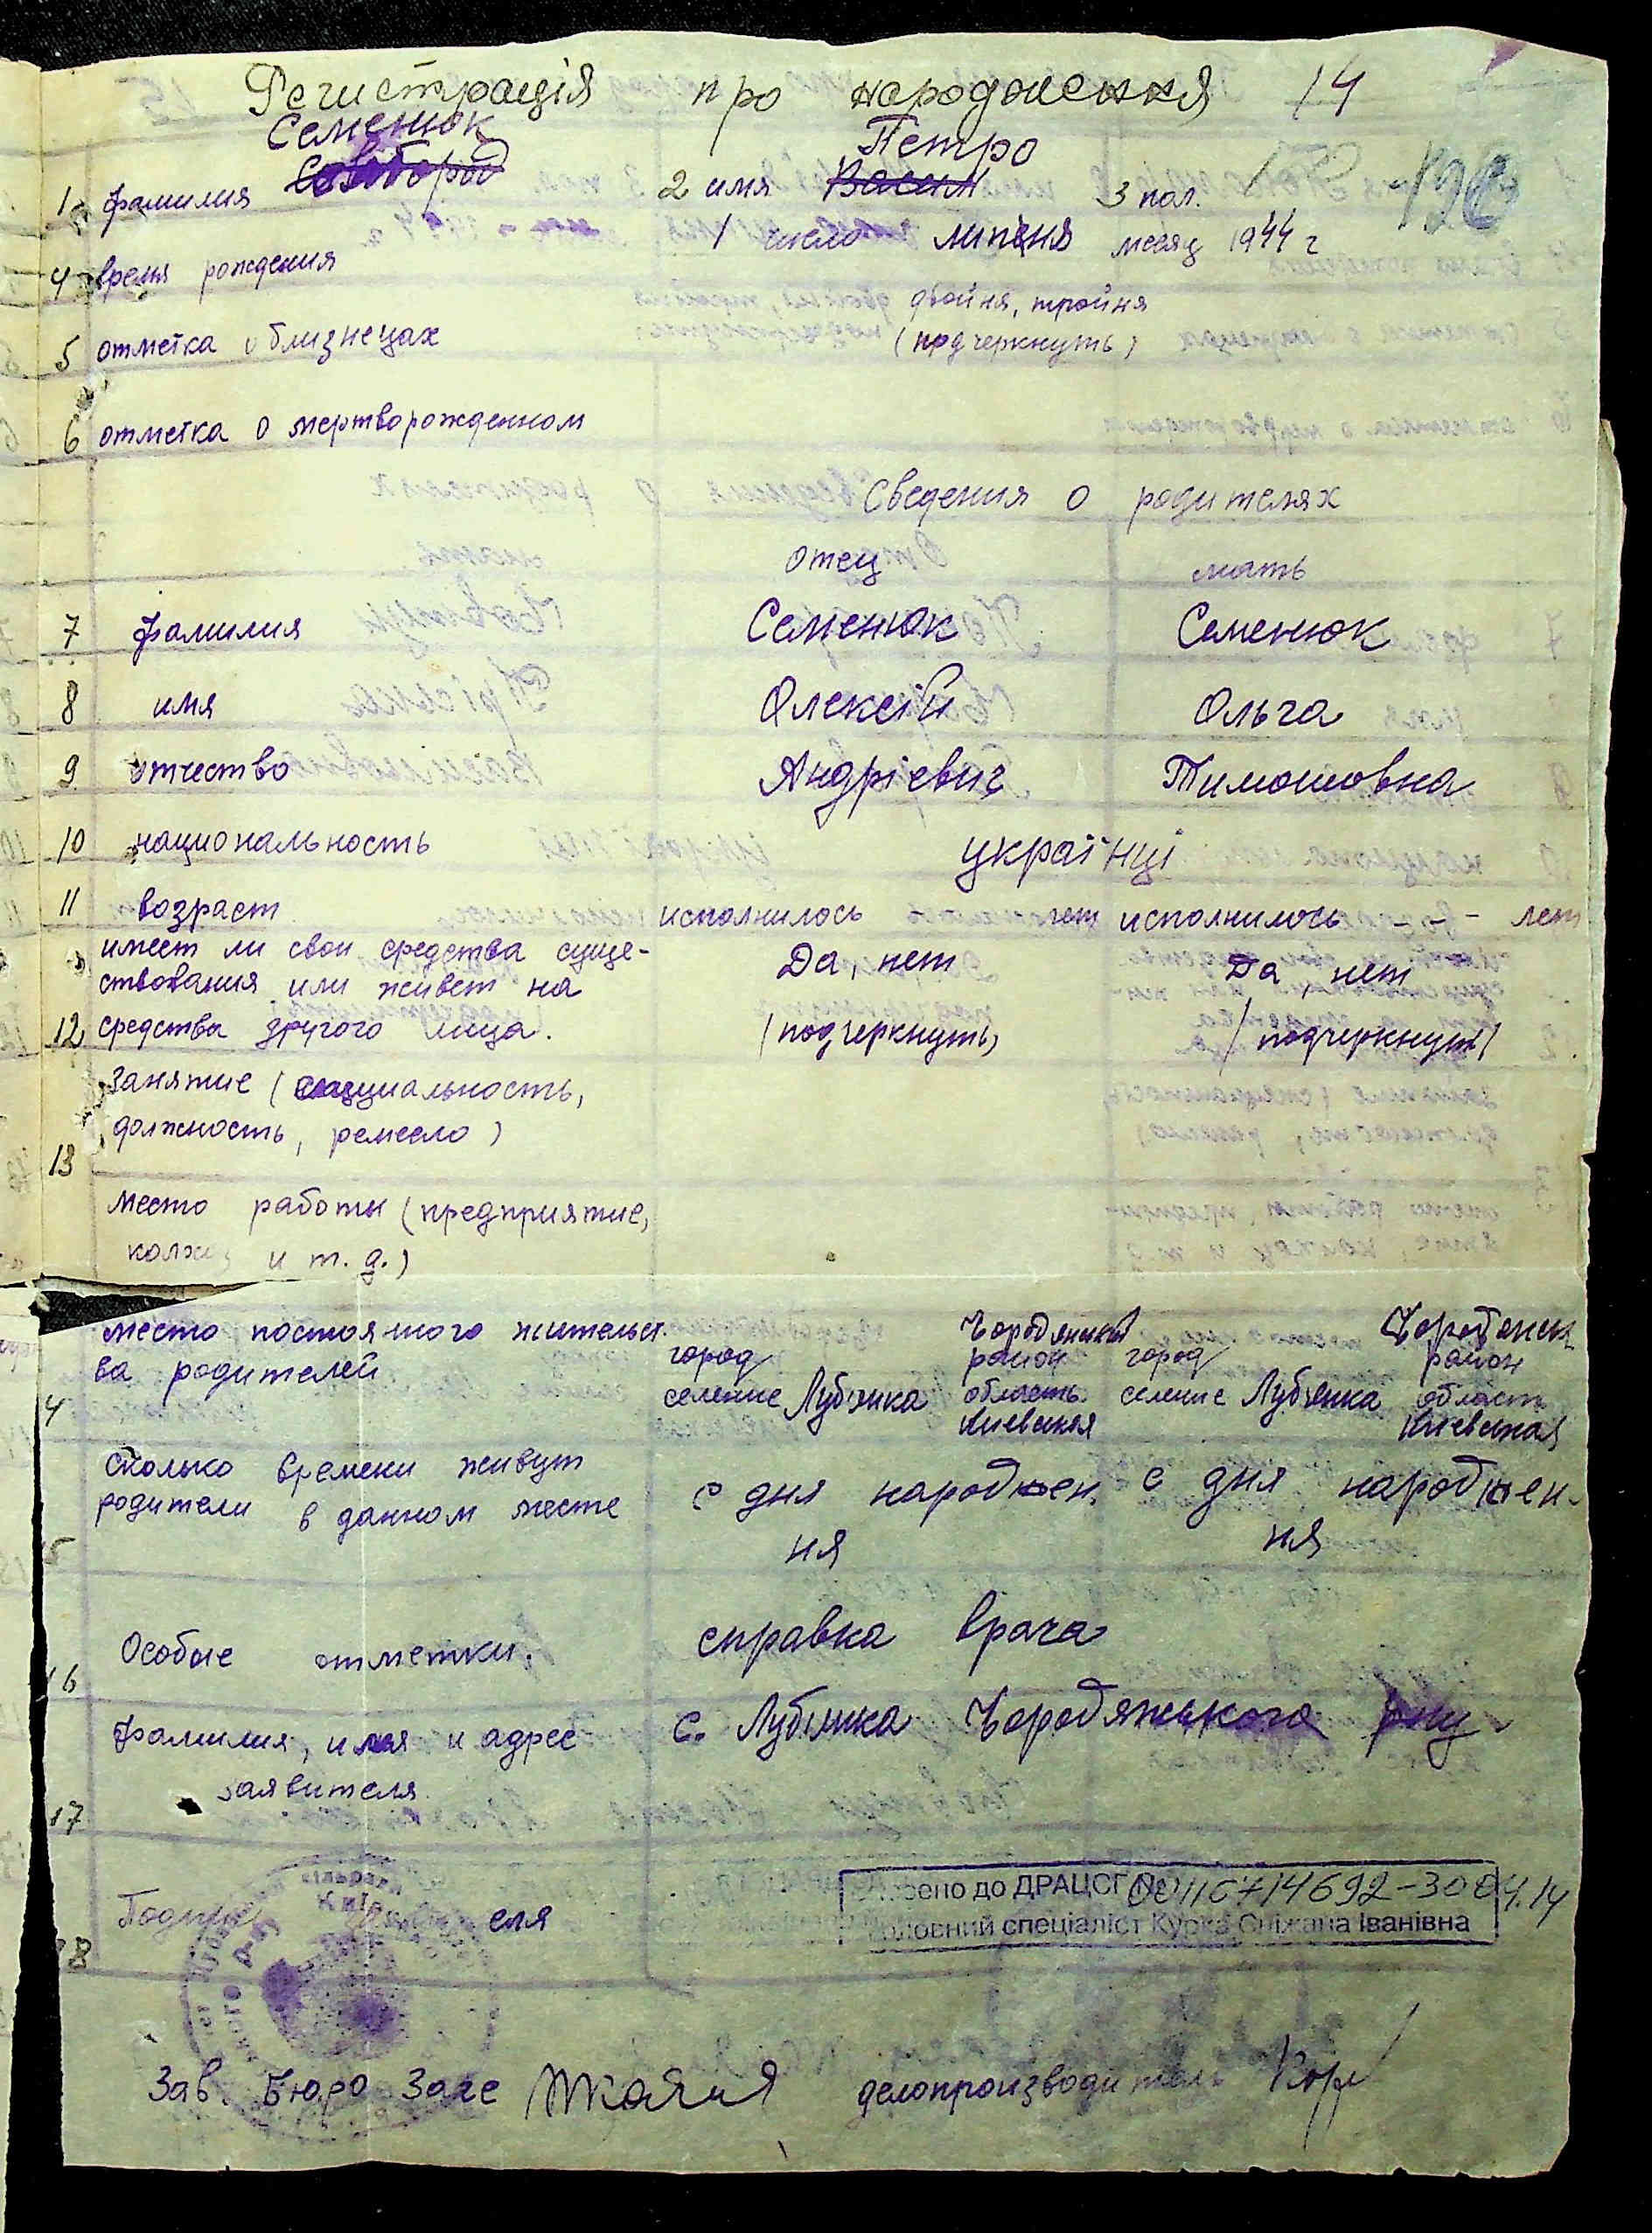 Регистрація про народження 14
Семенюк Петро
1 фамилия 2 имя Васил 3 пол. 126
4 время рождения 1 число липня месяц 1944 г
двойня, тройня
5 отметка о близнецах (подчеркнуть)
6 отметка о мертворожденном
Сведения о родителях
отец мать
7 фамилия Семенюк Семенюк
8 имя Олексій Ольга
9 отчество Андріевич Тимошовна
10 национальность українці
11 возраст исполнилось лет исполнилось - - лет
имеет ли свои средства суще-
ствования или живет на Да, нет Да, нет
12 средства другого лица. (подчеркнуть) (подчеркнуть)
занятие (специальность,
должность, ремесло)
13
место работы (предприятие,
колхоз и т. д.)
место постоянного жительст-
ва родителей город район город район
4 селение Луб'янка область селение Луб'янка область
Киевская Киевская
Сколько времени живут
родители в данном месте с дня народжен- с дня народжен-
15 ня ня
Особые отметки. справка врача
16
Фамилия, имя и адрес с. Луб'янка Бородянського р-ну
заявителя
17
Подпись еля
18
ено до ДРАЦСГ № 00116714692-30 04.14
оловний спеціаліст Курка Сніжана Іванівна
Зав. Бюро Загс делопроизводитель